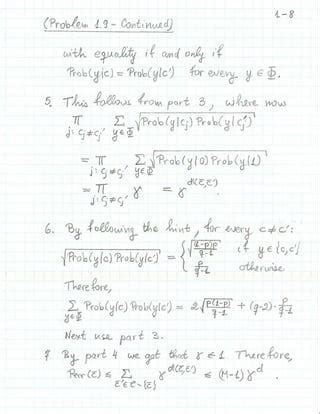 1-8
(Problem 1.9 - Continued)
with equality if and only if
Prob(y|c) = Prob(y|c') for every y ∈ Φ.
5. This follows from part 3, where now
∏_{j: c_j≠c_j'} ∑_{y∈Φ} √(Prob(y|c_j) Prob(y|c_j'))
= ∏_{j: c_j≠c_j'} ∑_{y∈Φ} √(Prob(y|0) Prob(y|1))
= ∏_{j: c_j≠c_j'} γ = γ^{d(c,c')}.
6. By following the hint, for every c≠c':
√(Prob(y|c) Prob(y|c')) = { √((1-p)p/(q-1)) if y ∈ {c,c'}
p/(q-1) otherwise
Therefore,
∑_{y∈Φ} √(Prob(y|c) Prob(y|c')) = 2√(p(1-p)/(q-1)) + (q-2)·p/(q-1)
Next use part 3.
7. By part 4 we get that γ ≤ 1. Therefore,
Perr(c) ≤ ∑_{c'∈C\{c}} γ^{d(c,c')} ≤ (M-1)γ^d.